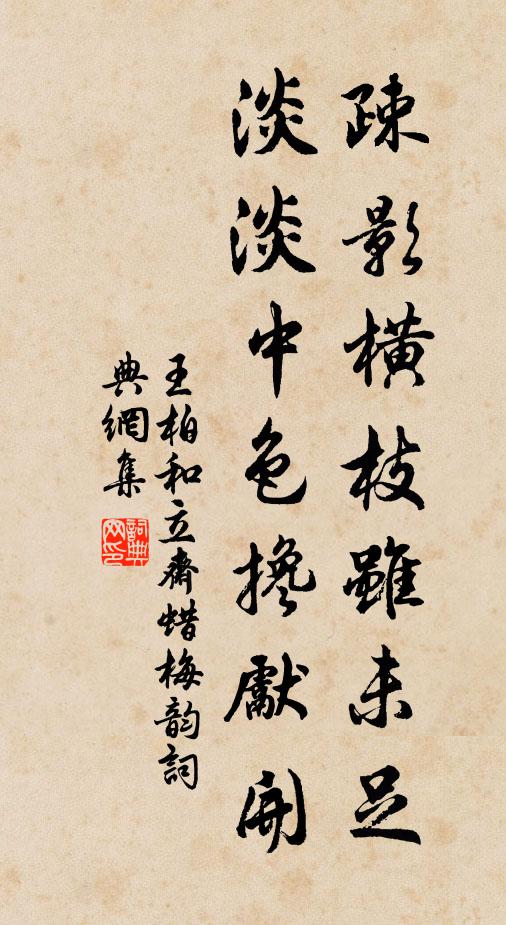 疎影橫枝雖未足
淡淡中色攙獻開
王柏和立齋蜡梅韵詞
典網集
詞典
网印